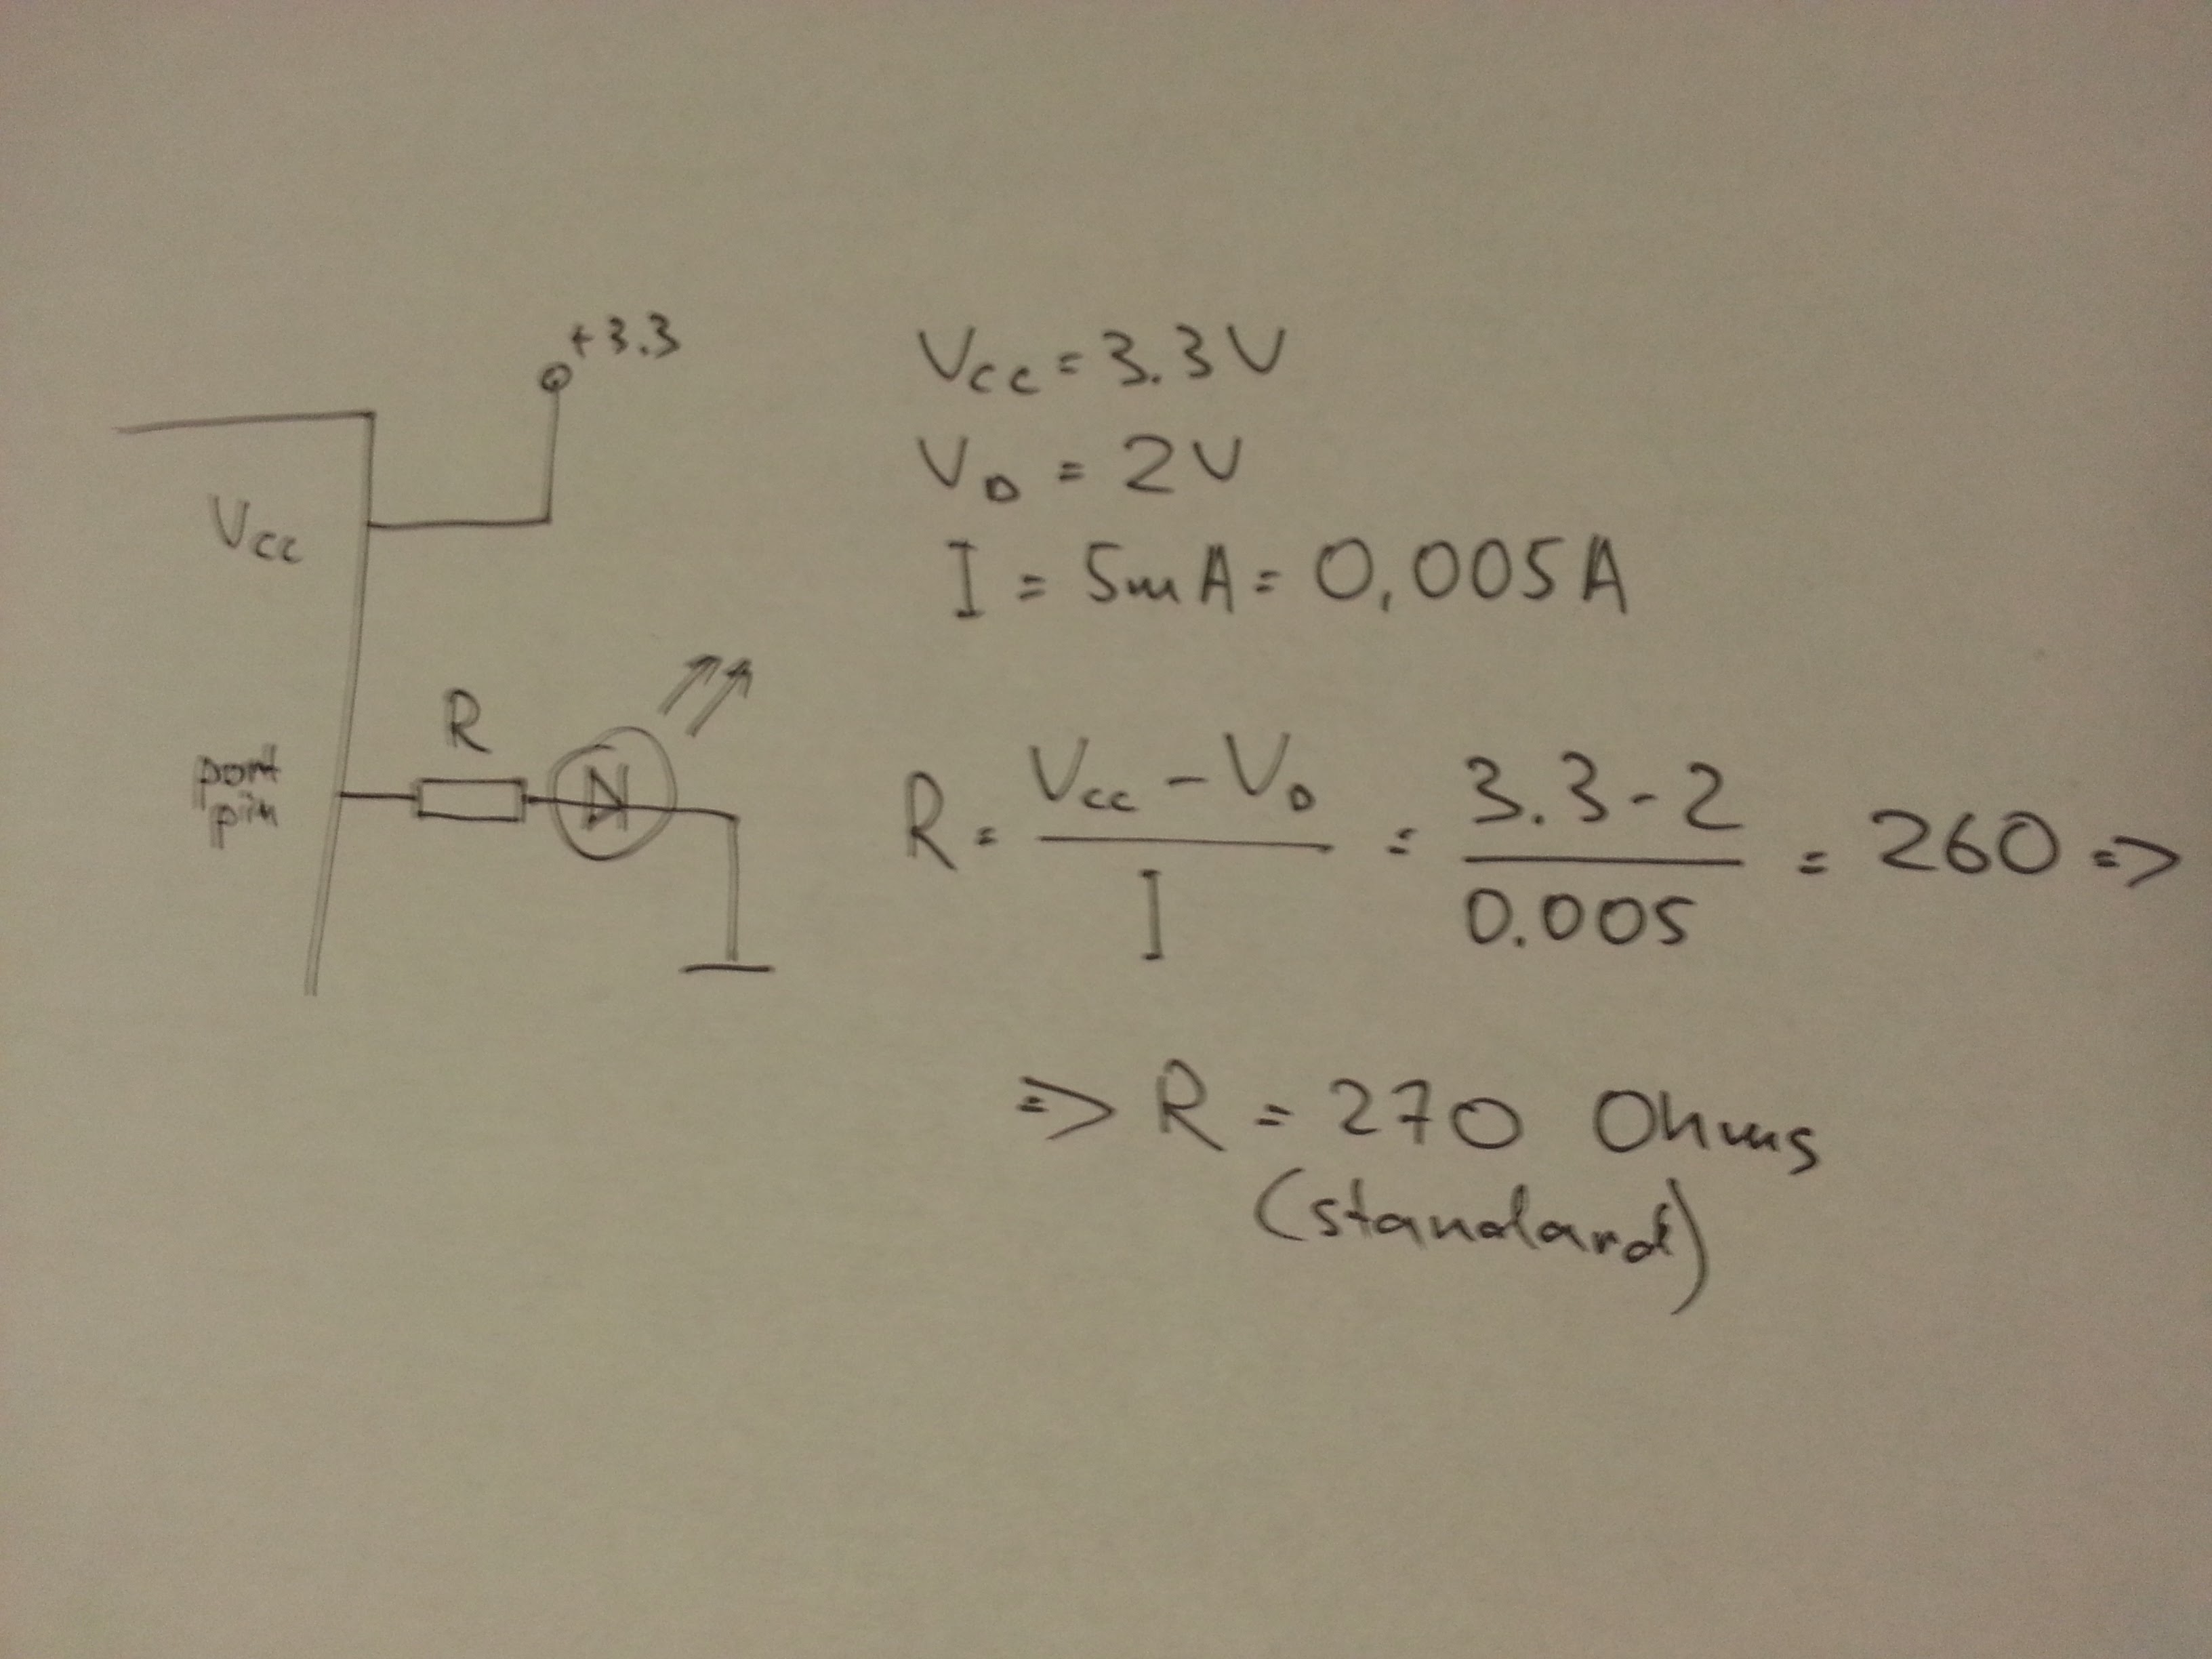 +3.3
Vcc
R
port
pin
Vcc = 3.3V
VD = 2V
I = 5mA = 0,005A
R = Vcc - VD / I = 3.3 - 2 / 0.005 = 260 =>
=> R = 270 Ohms
(standard)